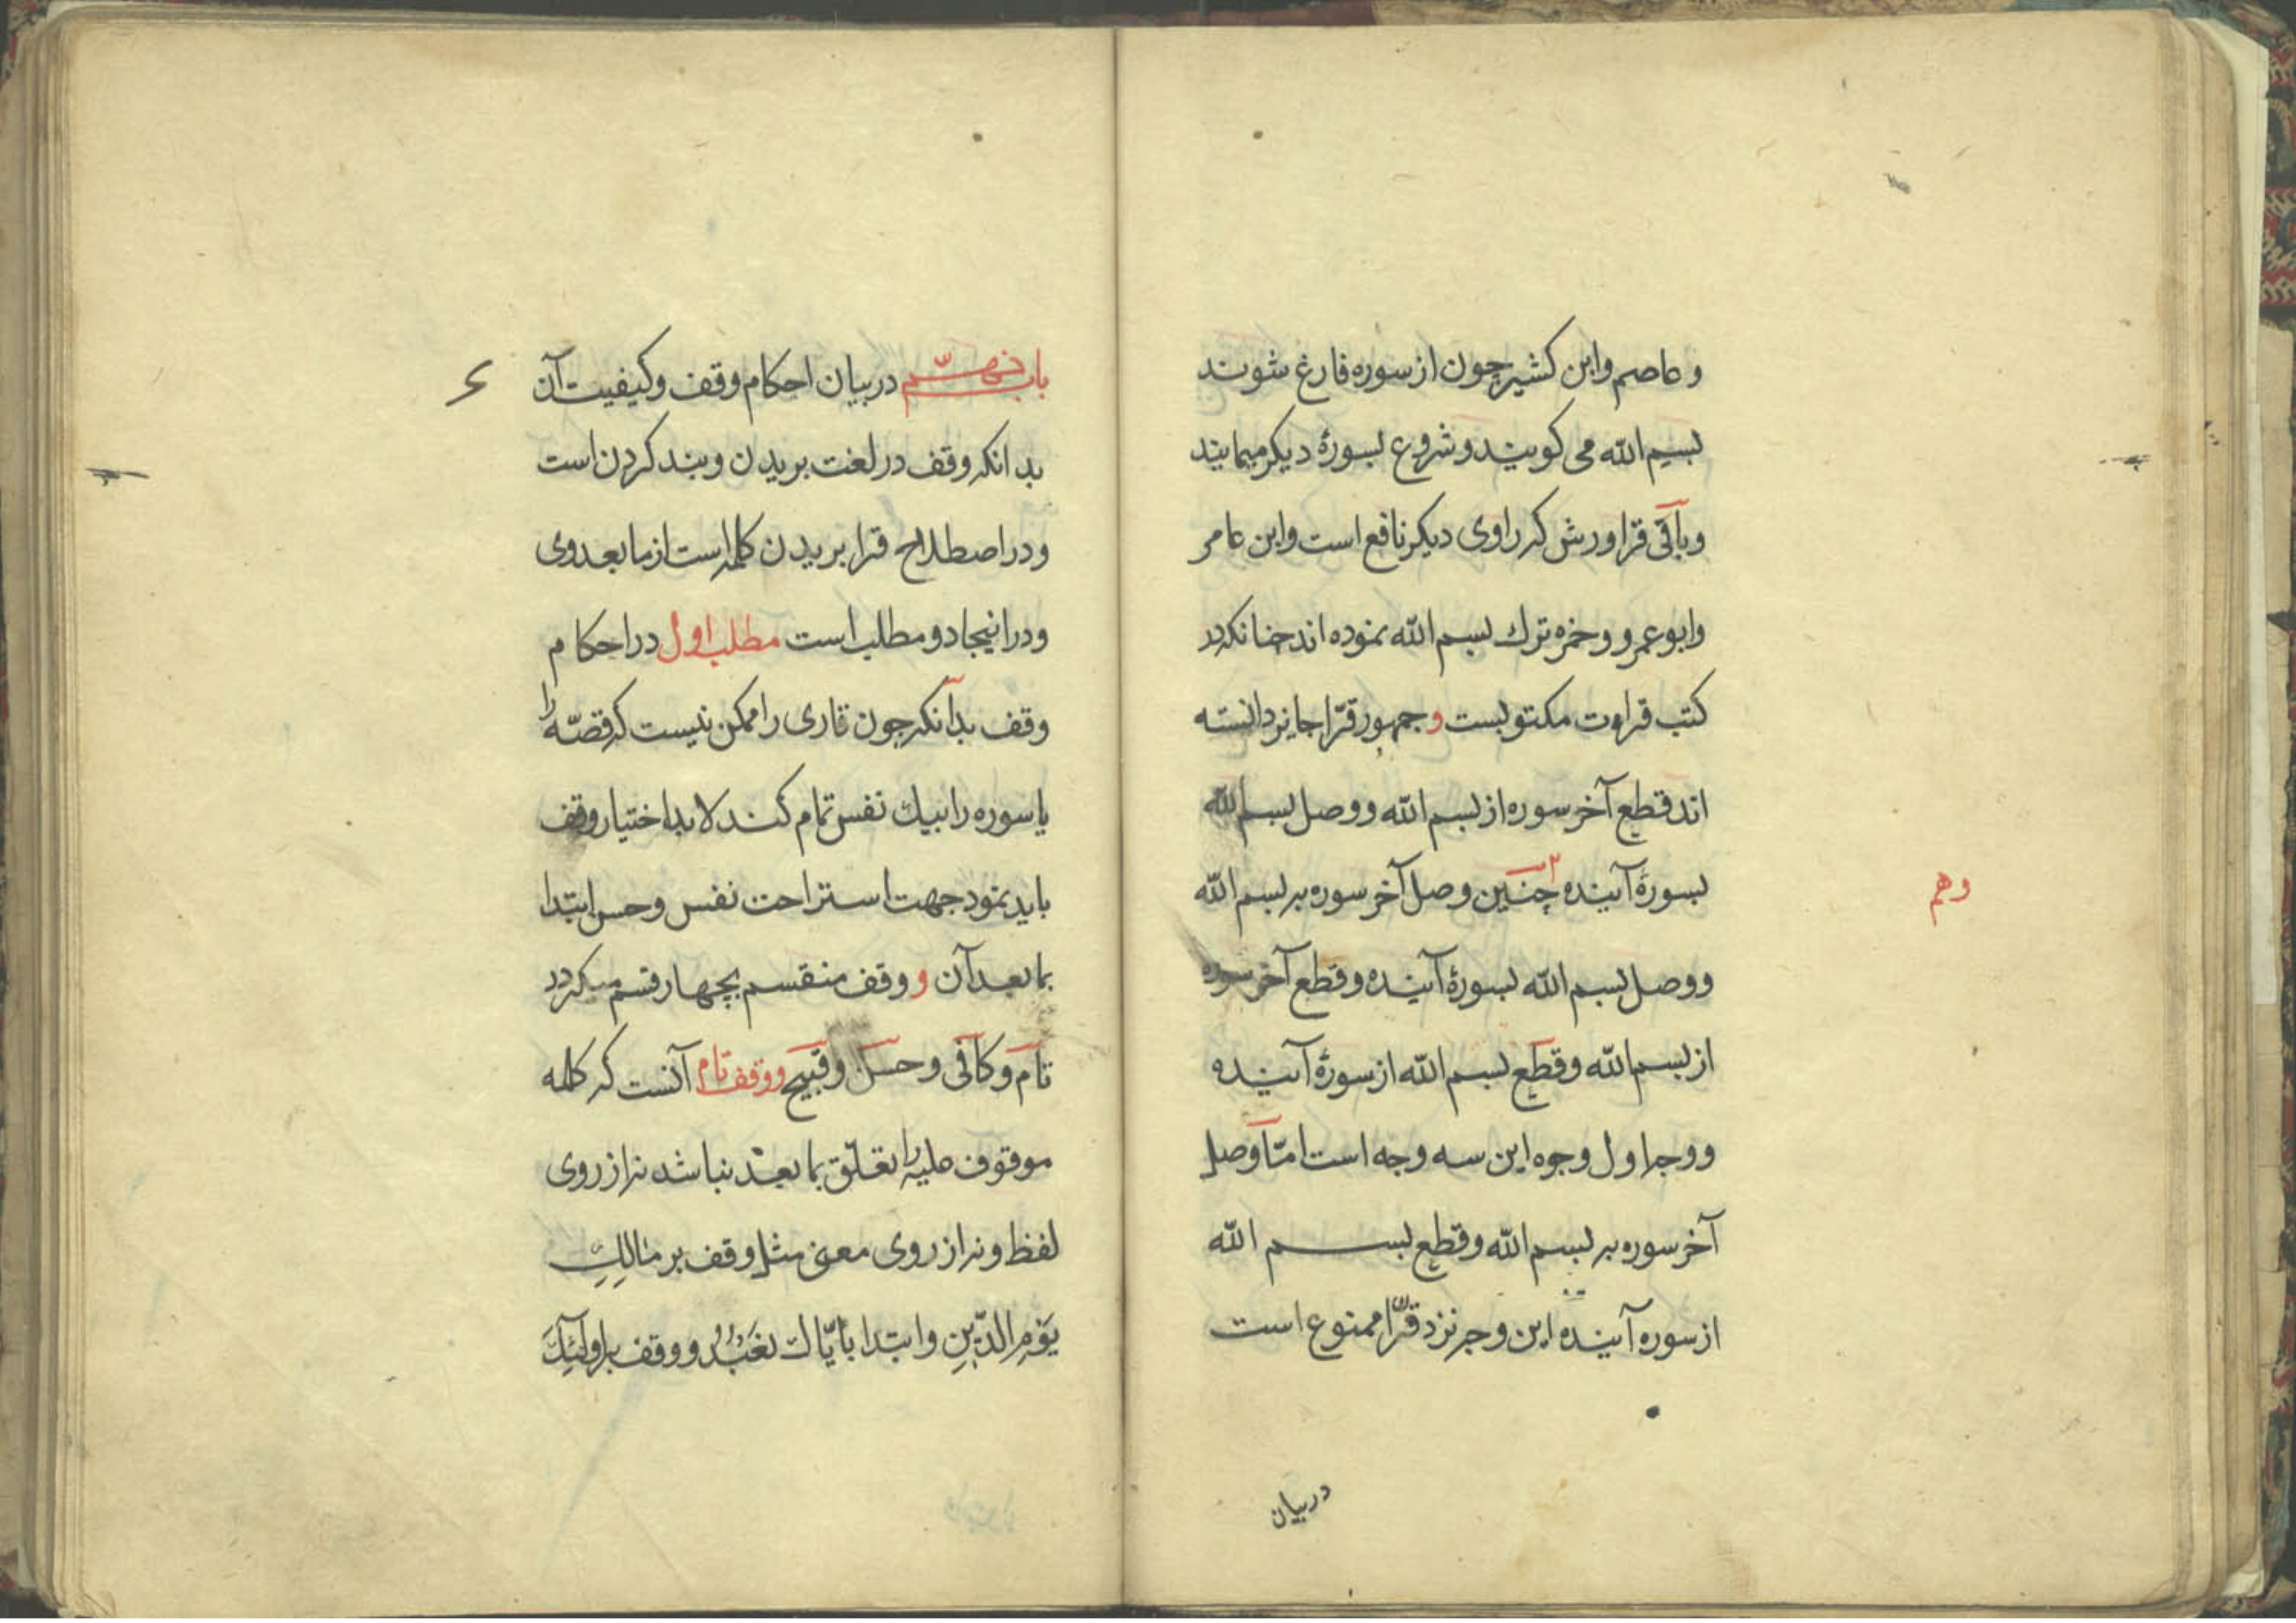 و عاصم وابن کشیر چون از سوره فارغ شوند
بسم الله می کویند و شروع بسورهٔ دیکر مینمایند
وباقی قرا ورش که راوی دیکر نافع است وابن عامر
وابوعمرو وحمزه ترك بسم الله نموده اند چنانکه در
کتب قراءت مکتوبست و جمهور قرّا جایز دانسته
اند قطع آخر سوره از بسم الله و وصل بسم الله
بسورهٔ آینده چنین وصل آخر سوره بر بسم الله
وهم
و وصل بسم الله بسورهٔ آینده و قطع آخر سوره
از بسم الله و قطع بسم الله از سورهٔ آینده
و وجه اول وجوه این سه وجه است امّا وصل
آخر سوره بر بسم الله و قطع بسم الله
از سوره آینده این وجه نزد قرّا ممنوع است
در بیان
باب نهم در بیان احکام وقف و کیفیت آن
بدانکه وقف در لغت بریدن و بند کردن است
و در اصطلاح قرا بریدن کلمه است از ما بعد وی
و در اینجا دو مطلب است مطلب اول در احکام
وقف بدانکه چون قاری را ممکن نیست که قصّه را
یا سوره را بیك نفس تمام کند لابد اختیار وقف
باید نمود جهت استراحت نفس و حسن ابتدا
بما بعد آن و وقف منقسم بچهار قسم میکردد
تام و کافی و حسن و قبیح و وقف تام آنست که کلمه
موقوف علیه را تعلّق بما بعد نباشد نه از روی
لفظ و نه از روی معنی مثل وقف بر مٰالِكِ
یَوْمِ الدّینِ و ابتدا بایّاك نَعْبُدُ و وقف بر اولٰئِكَ